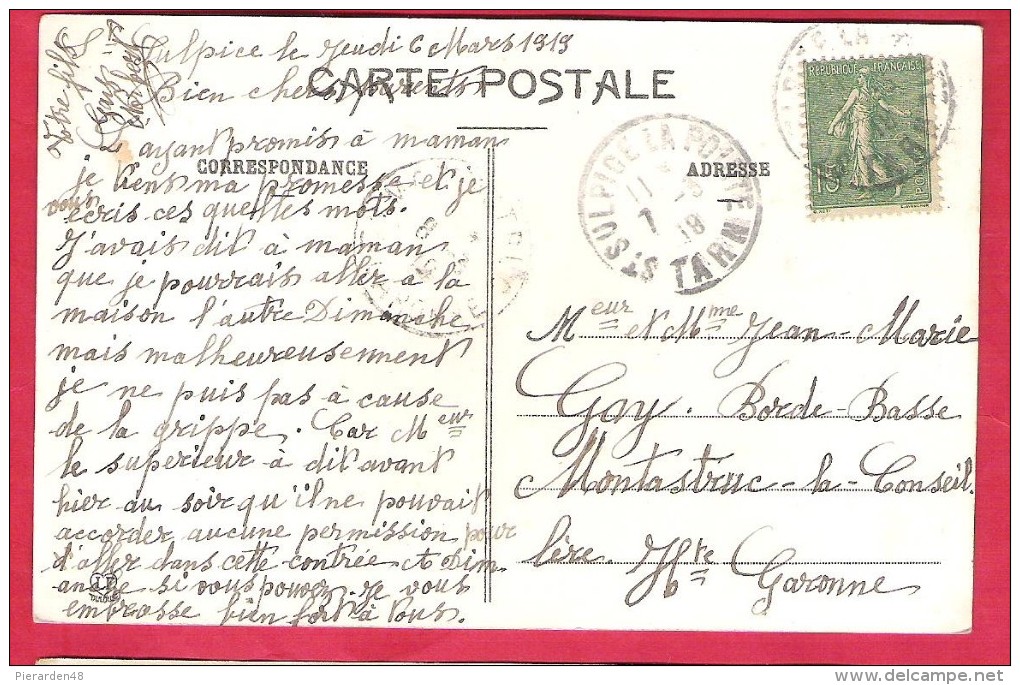 St Sulpice le Jeudi 6 Mars 1919
CARTE POSTALE
Bien chers parents
CORRESPONDANCE
ayant promis à maman
je viens ma promesse et je
vous
écris ces quelques mots.
J'avais dit à maman
que je pourrais aller à la
maison l'autre Dimanche
mais malheureusement
je ne puis pas à cause
de la grippe. Car Meur
le superieur à dit avant
hier au soir qu'il ne pouvait
accorder aucune permission pour
d'aller dans cette contrée. A Dim-
anche si vous pouvez. Je vous
embrasse bien fort à tous.
Votre fils
Gay
ADRESSE
REPUBLIQUE FRANÇAISE
15
POSTES
ST SULPICE LA POINTE
TARN
Meur et Mme Jean-Marie
Gay. Borde-Basse
Montastruc-la-Conseil.
lère. Hte Garonne
Pierarden48
delcampe.net